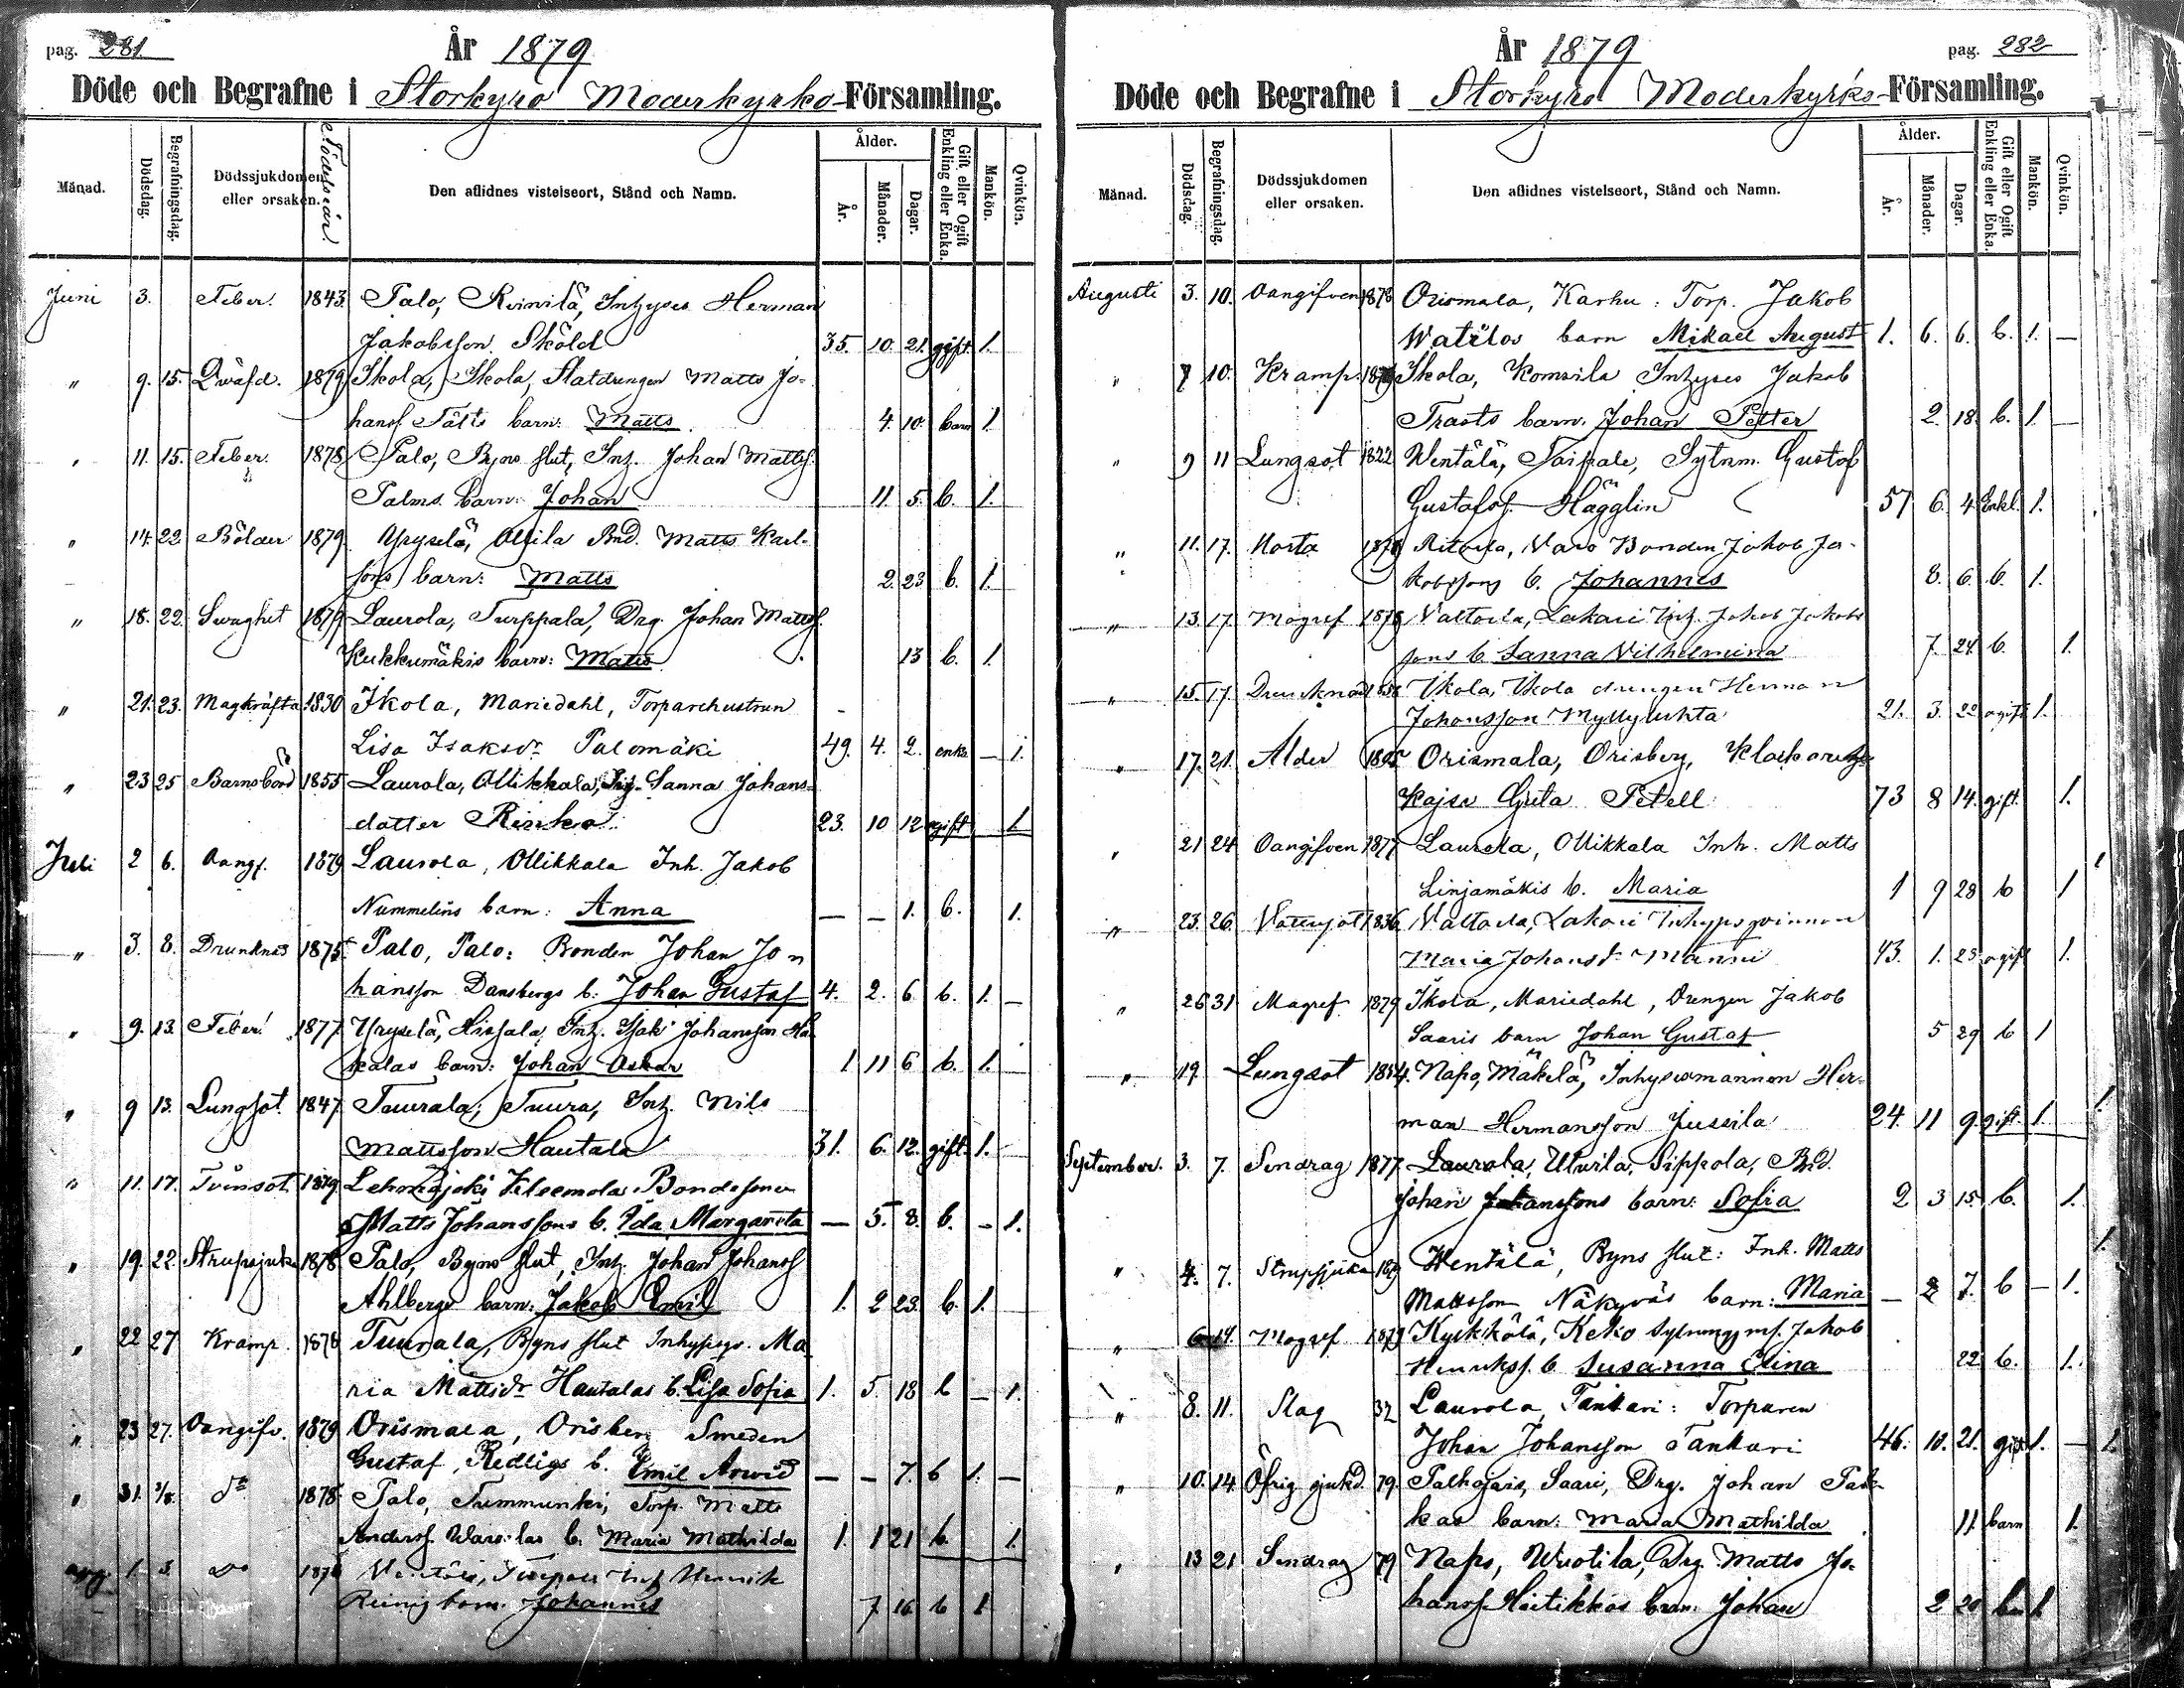 pag. 281
År 1879
Döde och Begrafne i Storkyro Moderkyrko-Församling.
Månad. Dödsdag. Begrafningsdag. Dödssjukdomen eller orsaken. Födelseår. Den aflidnes vistelseort, Stånd och Namn. Ålder. År. Månader. Dagar. Gift eller Ogift Enkling eller Enka. Mankön. Qvinkön.
Juni 3. Feber. 1843 Palo, Herman
Jakobsson Sköld 35. 10. 21. gift 1.
" 9. 15. Qwäfd. 1879 Ikola, Ikola, Matts Jo-
hans. barn: Matts 4. 10. barn 1.
" 11. 15. Feber. 1878 Palo, Byns slut, Inh. Johan Mattss.
Palms barn: Johan 11. 5. b. 1.
" 14. 22 Bölder 1879. Yryselä, Bnd. Matts Karl-
sons barn: Matts 2. 23 b. 1.
" 18. 22. Swaghet 1879 Laurola, Turppala, Drg. Johan Mattss.
Kukkumäkis barn: Matts 13 b. 1.
" 21. 23. Magkräfta 1830 Ikola, Mariedahl, Torparehustrun
Lisa Isaksdr. Palomäki 49. 4. 2. enka — 1.
" 23 25 Barnsbörd 1855 Laurola, Ollikkala, Sanna Johans-
dotter 23. 10 12 ogift 1
Juli 2 6. Oangf. 1879 Laurola, Ollikkala Inh. Jakob
Nummelins barn: Anna — — 1. b. 1.
" 3. 8. Drunknad 1875 Palo, Palo: Bonden Johan Jo-
hansson Dansbergs b: Johan Gustaf 4. 2. 6 b. 1. —
" 9. 13. Feber. 1877 Yryselä, Inh. Isak Johansson
barn: Johan Oskar 1 11 6 b. 1.
" 9 13. Lungsot. 1847 Tuurala, Tuura, Inh. Nils
Mattsson Hautala 31. 6. 12. gift. 1.
" 11. 17. Tvinsot 1879 Lehmäjoki Bondesonen
Matts Johanssons b. Ida Margareta — 5. 8. b. – 1.
" 19. 22. Strupsjuka 1878 Palo, Byns slut, Inh. Johan Johanss.
Ahlbergs barn: Jakob Emil 1. 2 23. b. 1.
" 22 27 Kramp. 1878 Tuurala, Byns slut Ma-
ria Mattsdr. Hautalas b. Lisa Sofia 1. 5. 18 b — 1.
" 23 27. Oangifv. 1879 Orismala, Orisberg Smeden
Gustaf, Redligs b. Emil Arwid — — 7. b 1. —
" 31. 1/8. do 1878 Palo, Tummunki, Torp. Matts
Anderss. b. Maria Mathilda 1. 1 21 b. 1.
aug. 1 3. do
barn. Johannes 7 16 b 1
pag. 282
År 1879
Döde och Begrafne i Storkyro Moderkyrko-Församling.
Månad. Dödsdag. Begrafningsdag. Dödssjukdomen eller orsaken. Den aflidnes vistelseort, Stånd och Namn. Ålder. År. Månader. Dagar. Gift eller Ogift Enkling eller Enka. Mankön. Qvinkön.
Augusti 3. 10. Oangifven 1878 Orismala, Karhu: Torp. Jakob
barn Mikael August 1. 6. 6. b. 1. —
" 7 10. Kramp. 1879 Ikola, Jakob
Trasts barn. Johan Petter 2. 18. b. 1. —
" 9 11 Lungsot 1822 Wentälä, Taipale, Sytnm. Gustaf
Gustafss. Hägglin 57 6. 4 Enkl. 1.
" 11. 17. Bonden Jakob Ja-
kobssons b. Johannes 8. 6. b. 1.
" 13. 17. Magref 1878 Valtarla, Lakari Inh. Jakob Jakobs
sons b. Sanna Vilhelmina 7. 24 b. 1.
" 15. 17. Drunknad Ikola, Ikola drengen Herman
Johansson Myllyluhta 21. 3. 22 ogift 1.
" 17. 21. Ålder 1805 Orismala, Orisberg,
Kajsa Greta Petell 73 8 14. gift. 1.
" 21 24 Oangifven 1877 Laurola, Ollikkala Inh. Matts
Linjamäkis b. Maria 1 9 28 b 1
" 23. 26. 1836. Valtarla, Lakari
Maria Johansd. Manni 43. 1. 25 ogift 1.
" 26 31 Magref 1879 Ikola, Mariedahl, Drengen Jakob
Saaris barn Johan Gustaf 5 29 b 1
" 19 Lungsot 1854. Napo, Mäkelä, Inhysesmannen Her-
man Hermansson Jussila 24. 11 9. gift. 1.
September. 3. 7. Sendrag 1877 Laurola, Ulvila, Sippola, Bnd.
Johan Johanssons barn: Sofia 2 3 15. b. 1.
" 4. 7. Strupsjuka 1879 Wentälä, Byns slut: Inh. Matts
Mattsson Näkyväs barn: Maria — 2 7. b – 1.
" 14. Magref 1879 Kyrkskälä, Keko Jakob
Henrikss. b Susanna Elina 22 b. 1.
" 8. 11. Slag 32 Laurola, Tankari: Torparen
Johan Johansson Tankari 46. 10. 21. gift 1. —
" 10. 14 Öfrig sjukd. 79. Palhojais, Saari, Drg. Johan
kas barn: Maria Mathilda 11 barn 1.
" 13 21 Sendrag 79 Napo, Wuotila, Drg. Matts Jo-
hanss. Hoitikkas barn: Johan 2 20 1.